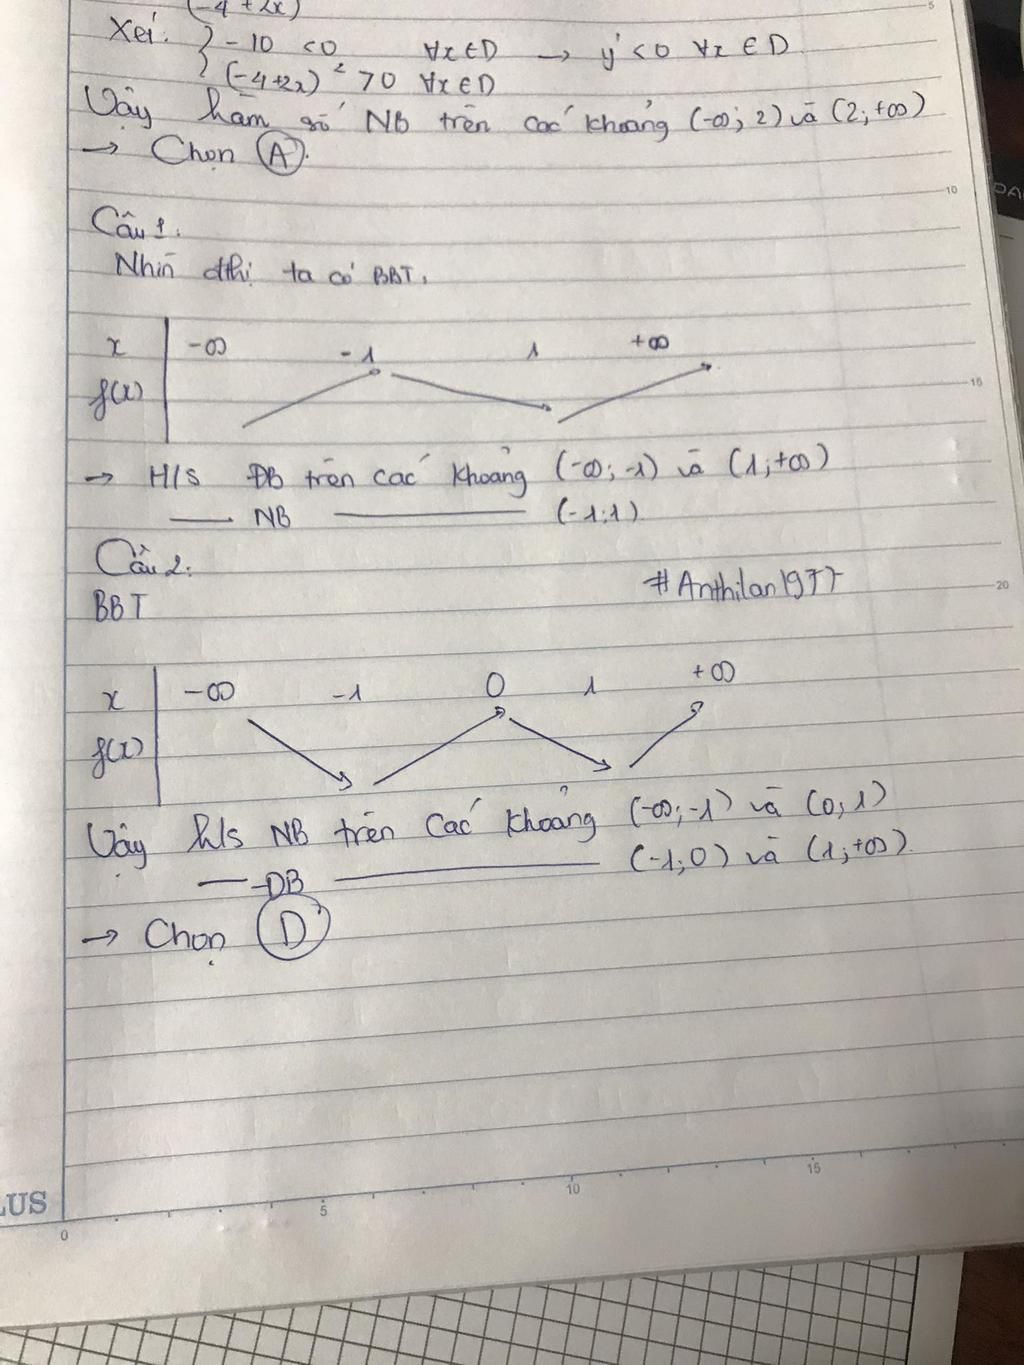 (-4+2x)
Xét: { -10 <0 ∀x∈D → y' <0 ∀x ∈ D
(-4+2x)² >0 ∀x∈D
Vậy hàm số NB trên các khoảng (-∞; 2) và (2; +∞)
→ Chọn A.
Câu 1.
Nhìn đthị ta có BBT.
x -∞ -1 1 +∞
f(x)
→ H/s ĐB trên các khoảng (-∞; -1) và (1; +∞)
— NB — (-1;1)
Câu 2:
#Anthilan1977
BBT
x -∞ -1 0 1 +∞
f(x)
Vậy h/s NB trên các khoảng (-∞; -1) và (0; 1)
— ĐB — (-1; 0) và (1; +∞).
→ Chọn D
5
10
15
20
LUS
0 5 10 15